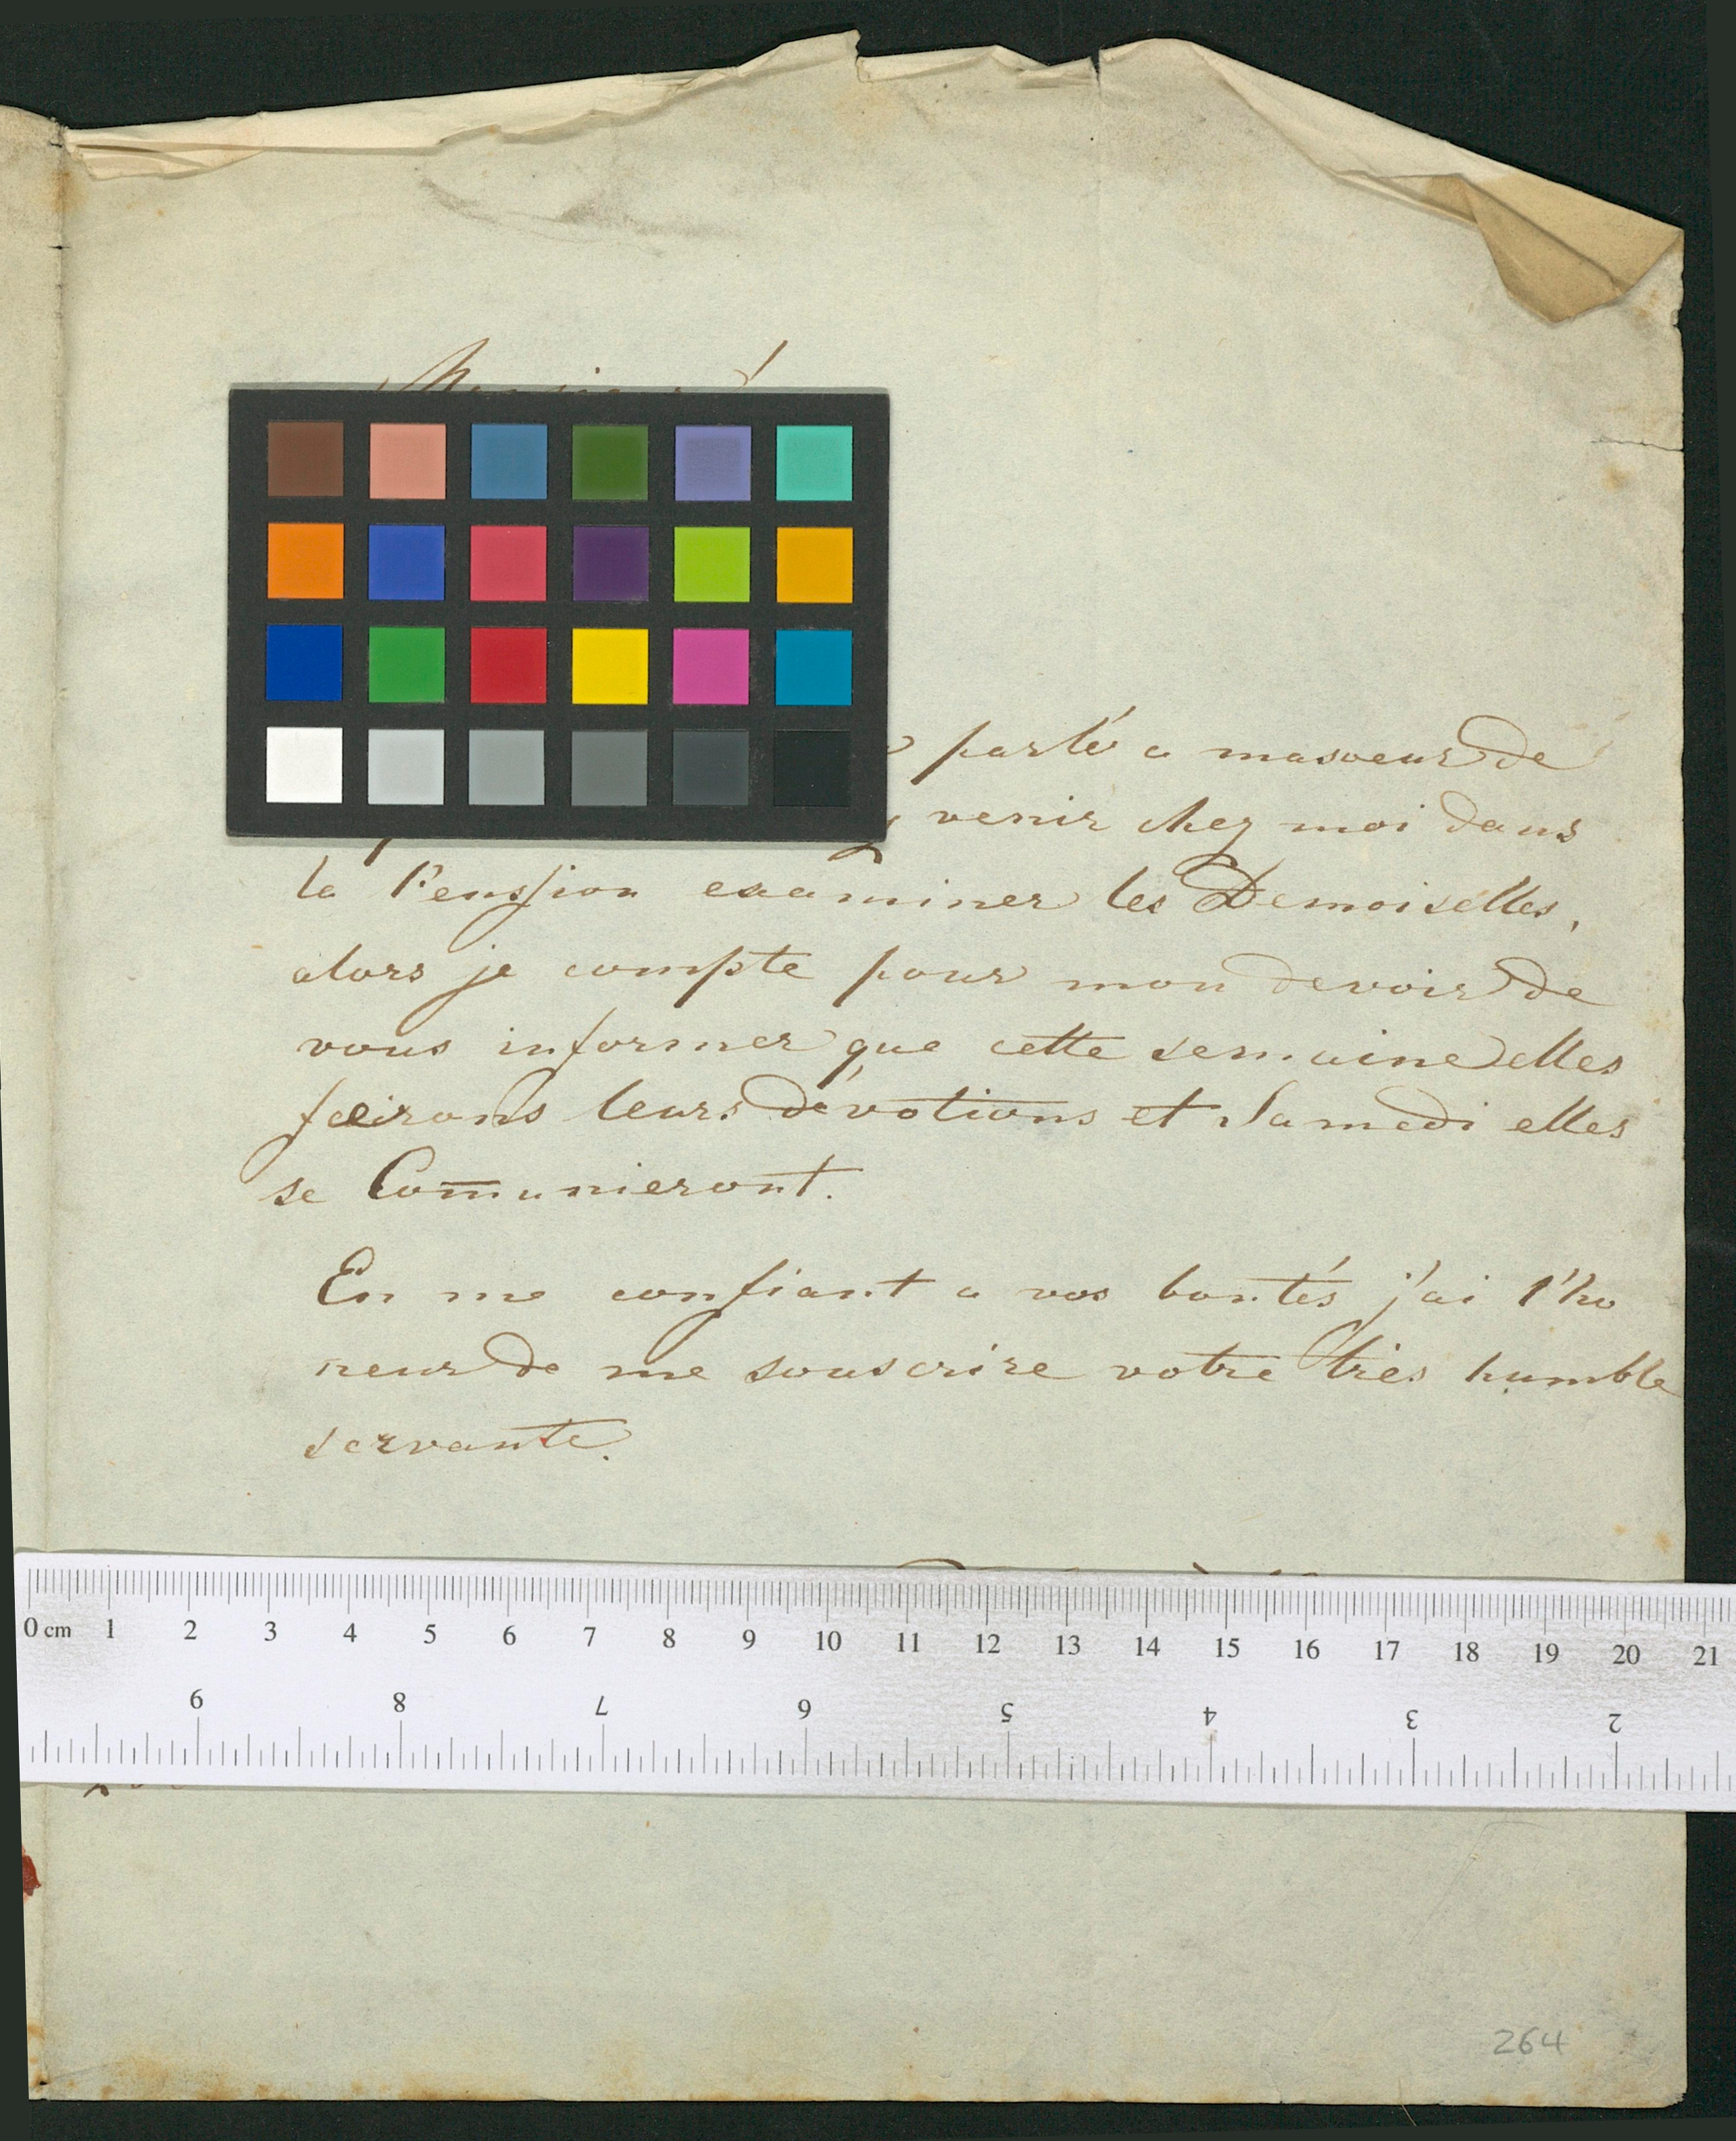 Monsieur!
parlé a masoeur de
venir chez moi dans
la Penssion examiner les Demoiselles,
alors je compte pour mon devoir de
vous informer que cette semaine elles
feirons leurs dévotions et Samedi elles
se Com̅unieront.
En me confiant a vos bontés j'ai l'ho
neur de me souscrire votre très humble
servante.
0 cm 1 2 3 4 5 6 7 8 9 10 11 12 13 14 15 16 17 18 19 20 21
9 8 7 6 5 4 3 2
264